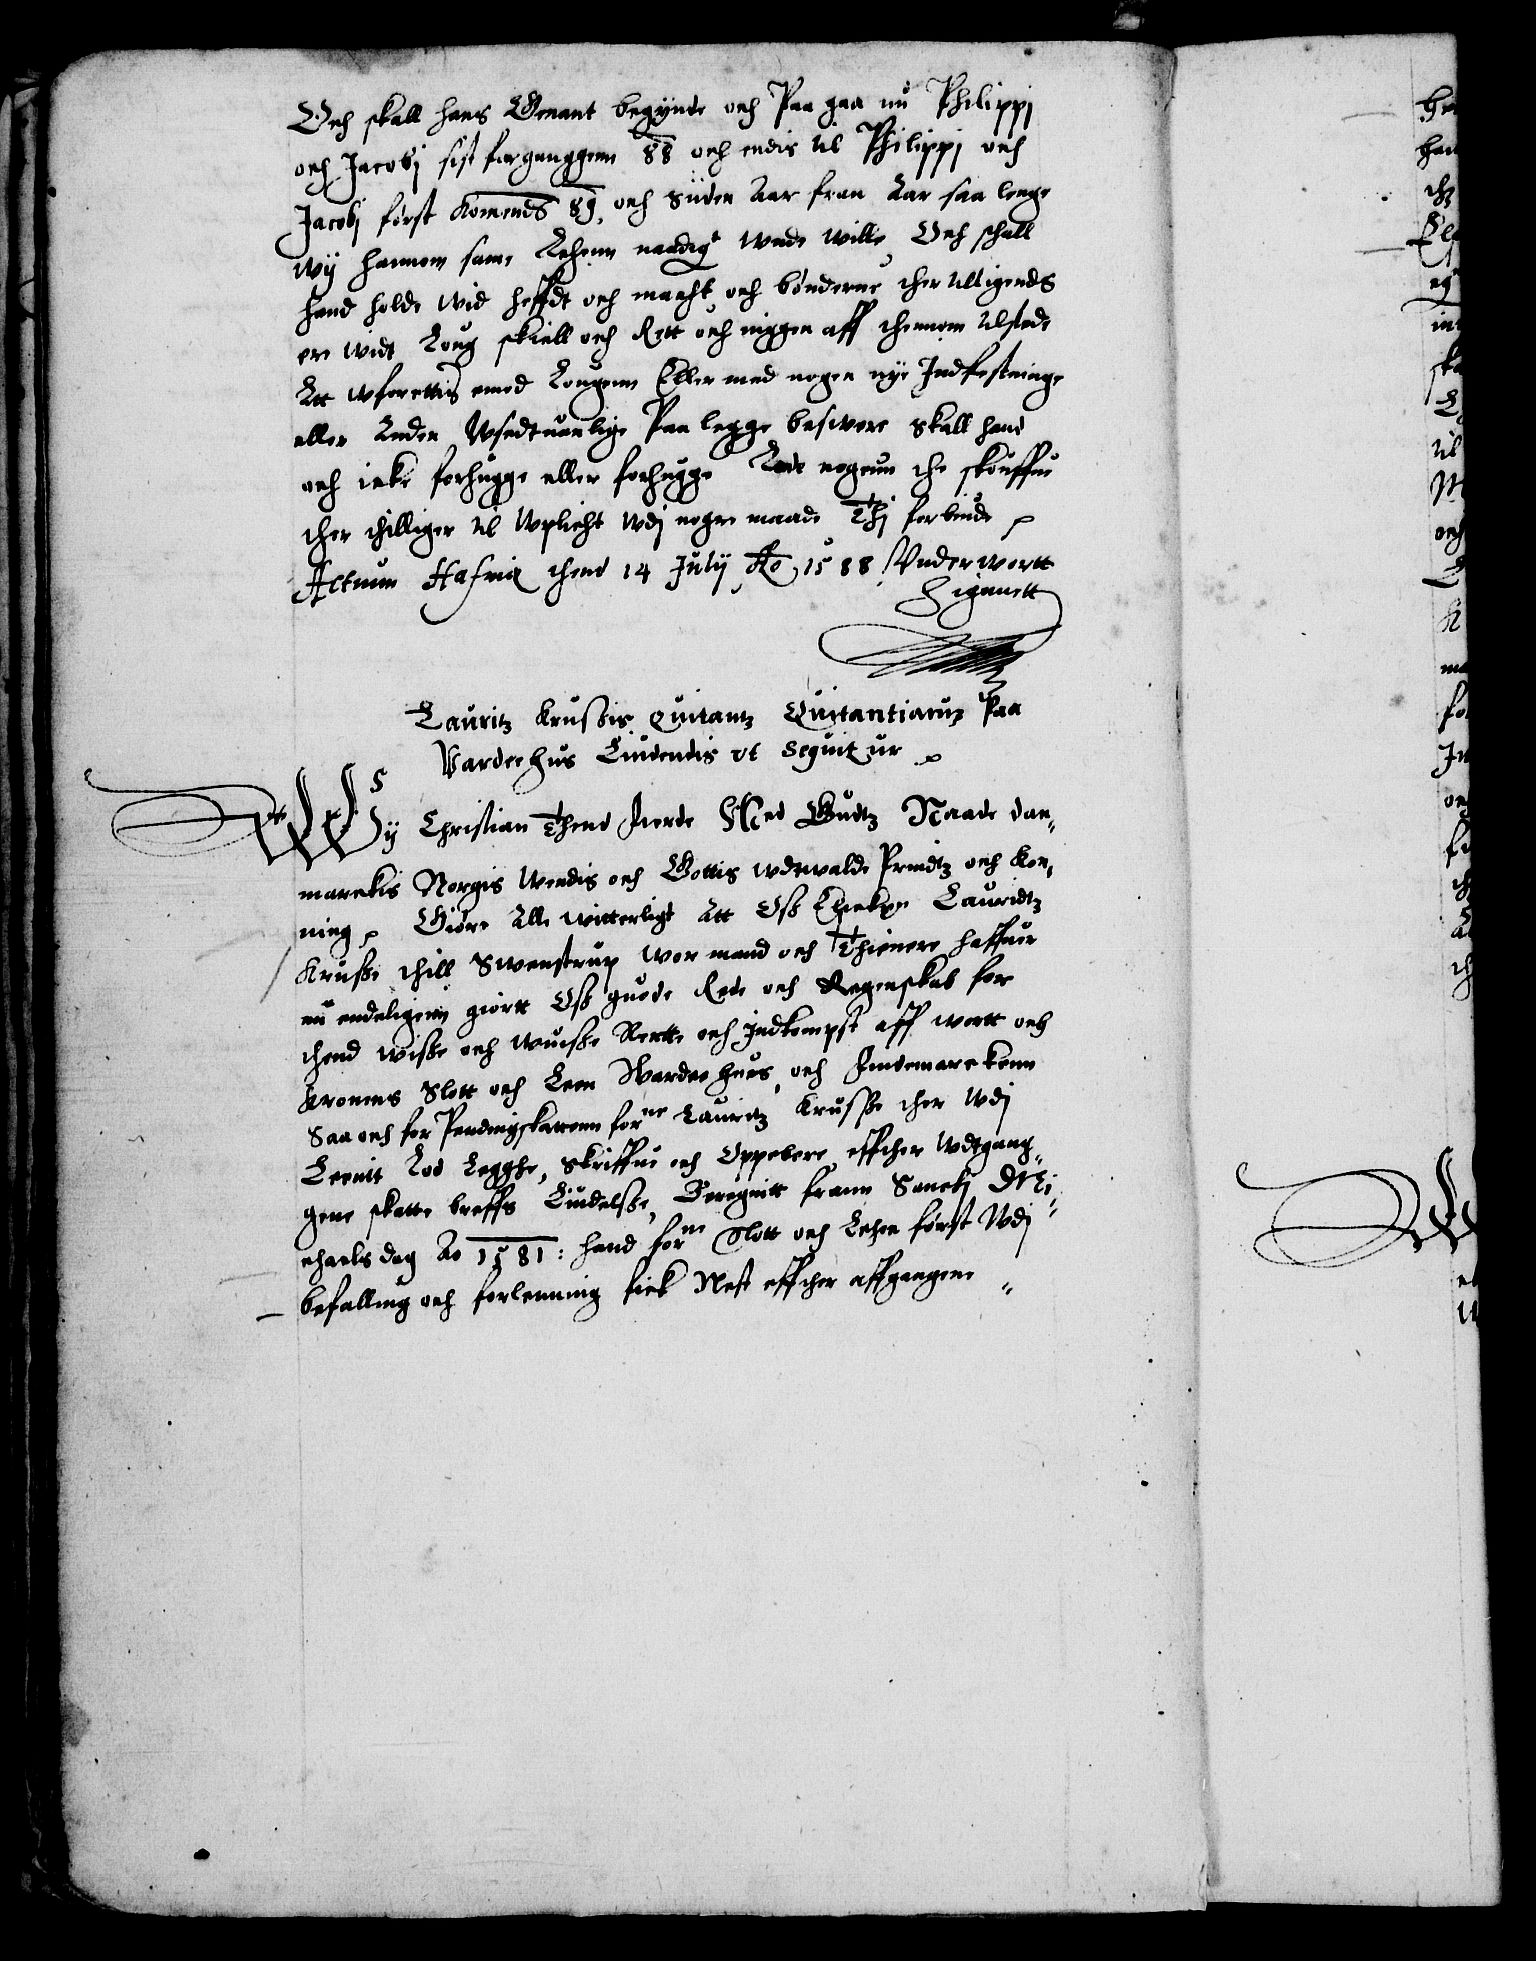 Och skall hans Genant begynde och Paa gaa nu Philippj
och Jacobj sist forganggenn 88 och endis til Philippj och
Jacobj først Komends 89, och Siiden Aar fran Aar saa lenge
wij hannom same Lehenn naadigt wnde wille, Och schall
hand holde wid heffdt och macht och bønderne ther til ligends
ere widt Loug skiell och Rett och inggen aff thennom tilstede
Att wforettis emod Lougenn Eller med nogen nye Indfestninge
eller Anden Vsedtuanlige Paa legge besvere Skall hand
och icke forhugge eller forhugge Lade nogenn the skouffue
ther thilliger til Wplicht Wdj nogre maade Thj forbiude
Actum Hafniæ thend 14 Julij Ao 1588 Vnder wortt
Signett
Lauritz Krussis quitantz Quitantiarum Paa
Vardeehus Liudendis vt Sequitur
Wy Christian Thend Fierde Med Gudtz Naade dan-
marckis Norgis Wendis och Gottis wdtwalde Prindtz och Kon-
ning, Giøre Alle witterligt Att Oss Elskr Lauridtz
Krusse thill Swenstrup wor mand och Thienere haffuer
nu endeligenn giørtt Oss guode Rede och Regenskab for
thend wisse och wuisse Rente och Indkompst aff wortt och
Kronens Slott och Leen Wardeehuus, och Findemarckenn
Saa och for Pendingskattenn forne Lauritz Krusse ther Wdj
Leenit Lod Legghe, Skriffue och Oppebere effther Wdtgang-
gene skatte breffs Liudelsse, Beregnitt frann Sanctj Mi-
chaels dag Ao 1581: hand forne Slott och Lehen først Wdj
befalling och forlenning fick Nest effther affgangene